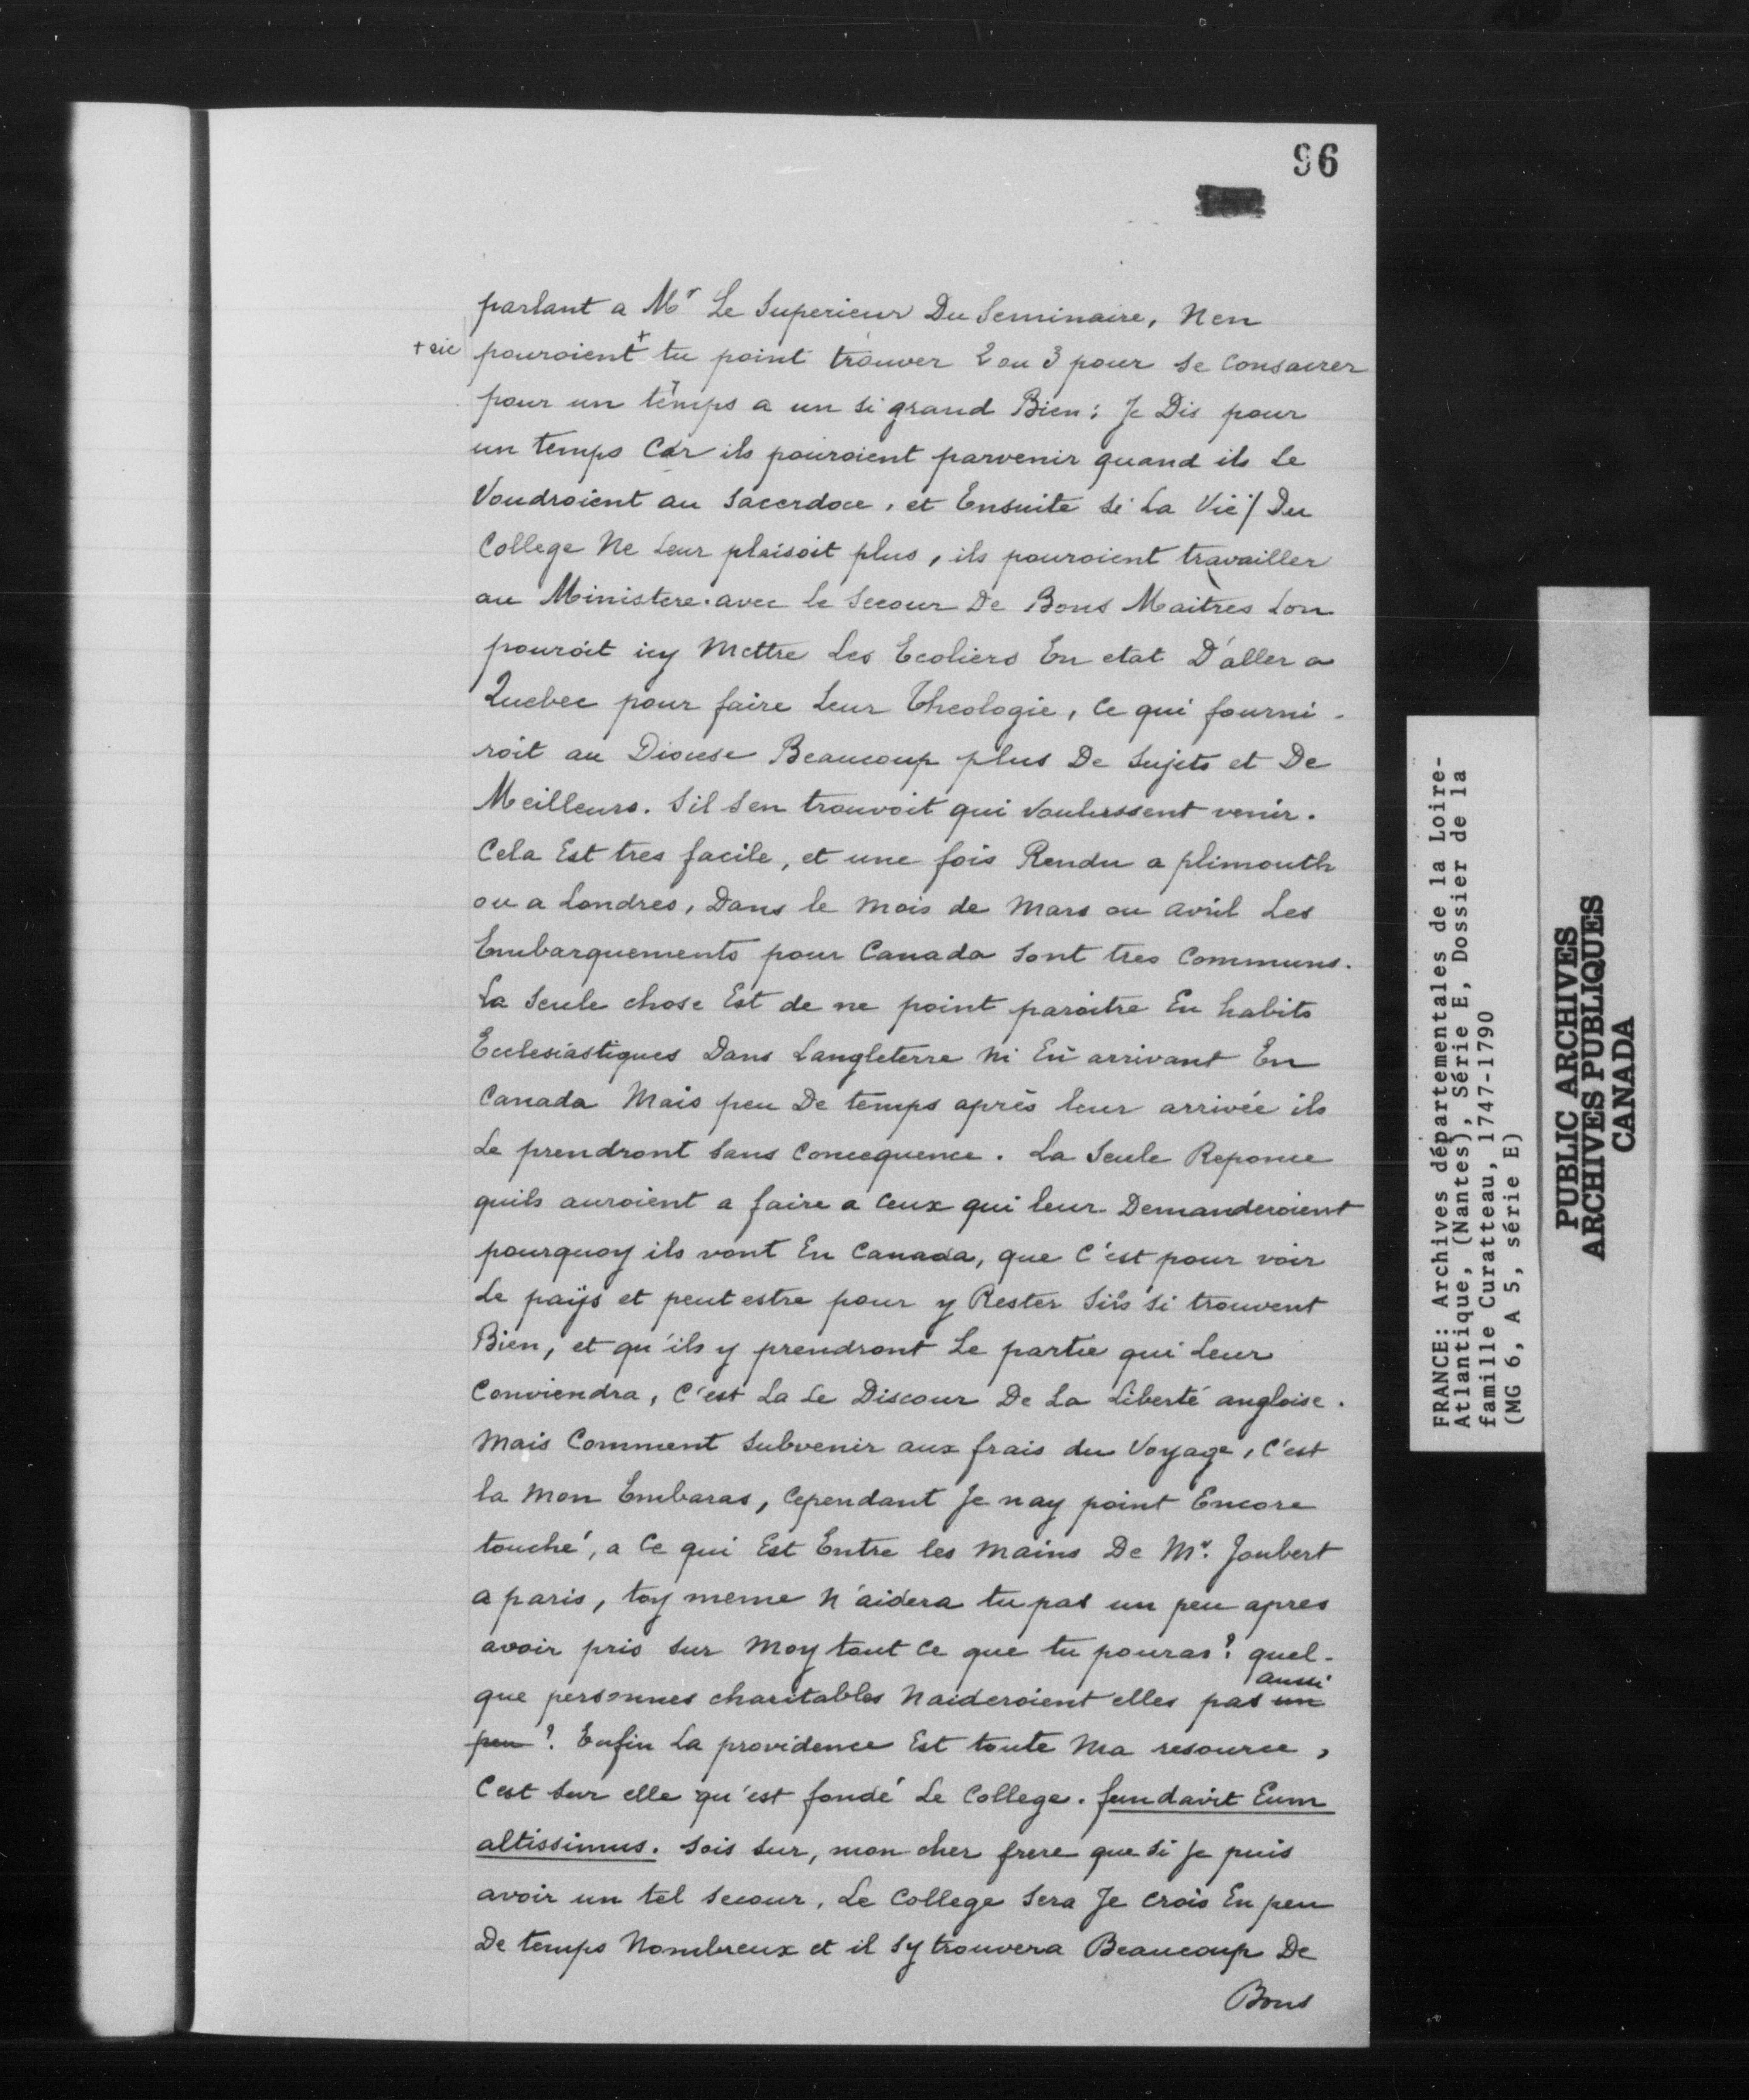 96
parlant a Mr Le Superieur Du Seminaire, Nen
+ sic pouroient + tu point trouver 2 ou 3 pour se consacrer
pour un temps a un si grand Bien: Je Dis pour
un temps Car ils pouroient parvenir quand ils Le
Voudroient au Sacerdoce, et Ensuite si La Vie / Du
College Ne Leur plaisoit plus, ils pouroient travailler
au Ministere. avec le Secour De Bons Maitres Lon
pouroit icy Mettre Les Ecoliers En etat D'aller a
Quebec pour faire Leur Theologie, Ce qui fourni-
roit au Diocese Beaucoup plus De Sujets et De
Meilleurs. Sil Sen trouvoit qui voulussent venir.
Cela Est tres facile, et une fois Rendu a plimouth
ou a Londres, Dans le Mois de Mars ou avril Les
Embarquements pour Canada Sont tres Communs.
La Seule chose Est de ne point paroitre En habits
Ecclesiastiques Dans Langleterre Ni En arrivant En
Canada Mais peu De temps après leur arrivée ils
Le prendront Sans Concequence. La Seule Reponce
quils auroient a faire a Ceux qui leur Demanderoient
pourquoy ils vont En Canada, que C'est pour voir
Le païs et peut estre pour y Rester Sils Si trouvent
Bien, et qu'ils y prendront Le partie qui Leur
Conviendra, C'est La Le Discour De La Liberté angloise.
Mais Comment Subvenir aux frais du Voyage, C'est
la Mon Embaras, Cependant Je nay point Encore
touché, a Ce qui Est Entre les Mains De Mr. Joubert
a paris, toy meme N'aidera tu pas un peu apres
avoir pris Sur Moy tout Ce que tu pouras? quel-
que personnes charitables Naideroient elles pas un aussi
peu?. Enfin La providence Est toute Ma resource,
C'est Sur elle qu'est fondé Le College. fundavit Eum
altissimus. Sois Sur, mon cher frere que Si Je puis
avoir un tel Secour, Le College Sera Je Crois En peu
De temps Nombreux et il Sy trouvera Beaucoup De
Bons
FRANCE: Archives départementales de la Loire-
Atlantique, (Nantes), Série E, Dossier de la
famille Curatteau, 1747-1790
(MG 6, A 5, série E)
PUBLIC ARCHIVES
ARCHIVES PUBLIQUES
CANADA